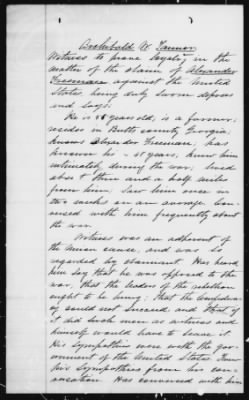 Archibald W.
Witness to prove loyalty in the
matter of the claim of Alexander
Freeman against the United
States being duly sworn deposes
and says:
He is years old; is a farmer;
resides in Butts county Georgia;
knows Alexander Freeman; has
known him years, knew him
intimately during the war; lived
about three and a half miles
from him; saw him once in
two weeks on an average. Con-
versed with him frequently about
the war.
Witness was an adherent of
the Union cause, and was so
regarded by claimant. Has heard
him say that he was opposed to the
war; that the leaders of the rebellion
ought to be hung; that the Confedera-
cy could not succeed and that if
it did such men as witness and
himself would have to leave it.
His sympathies were with the gov-
ernment of the United States. Knew
his sympathies from his con-
versation. Has conversed with him